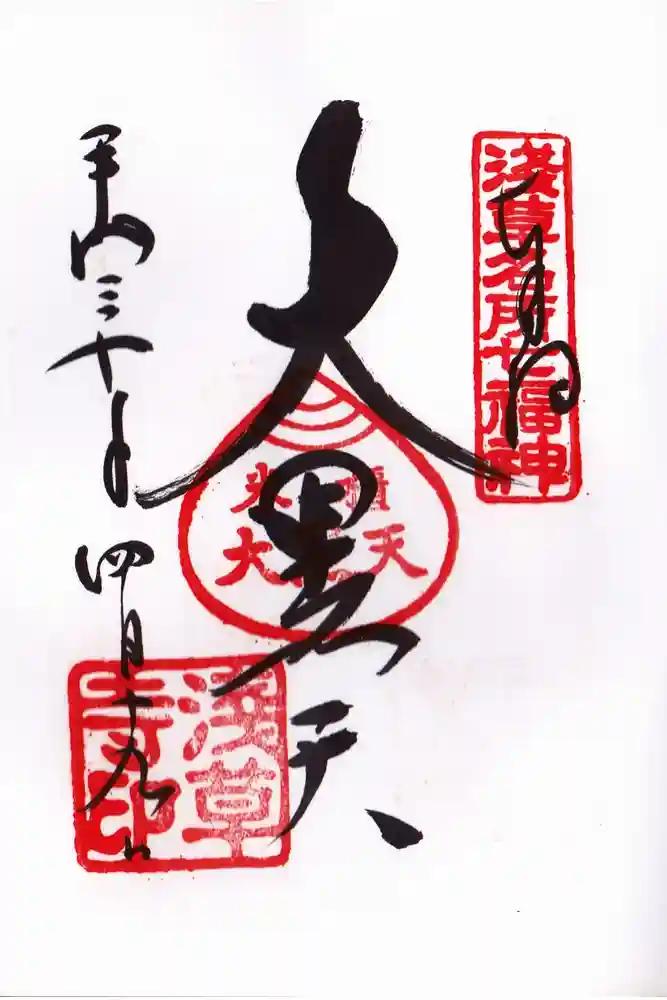 奉拝
浅草名所七福神
大黒天
米櫃
大黒天
平成三十年四月十九日
浅草
寺印